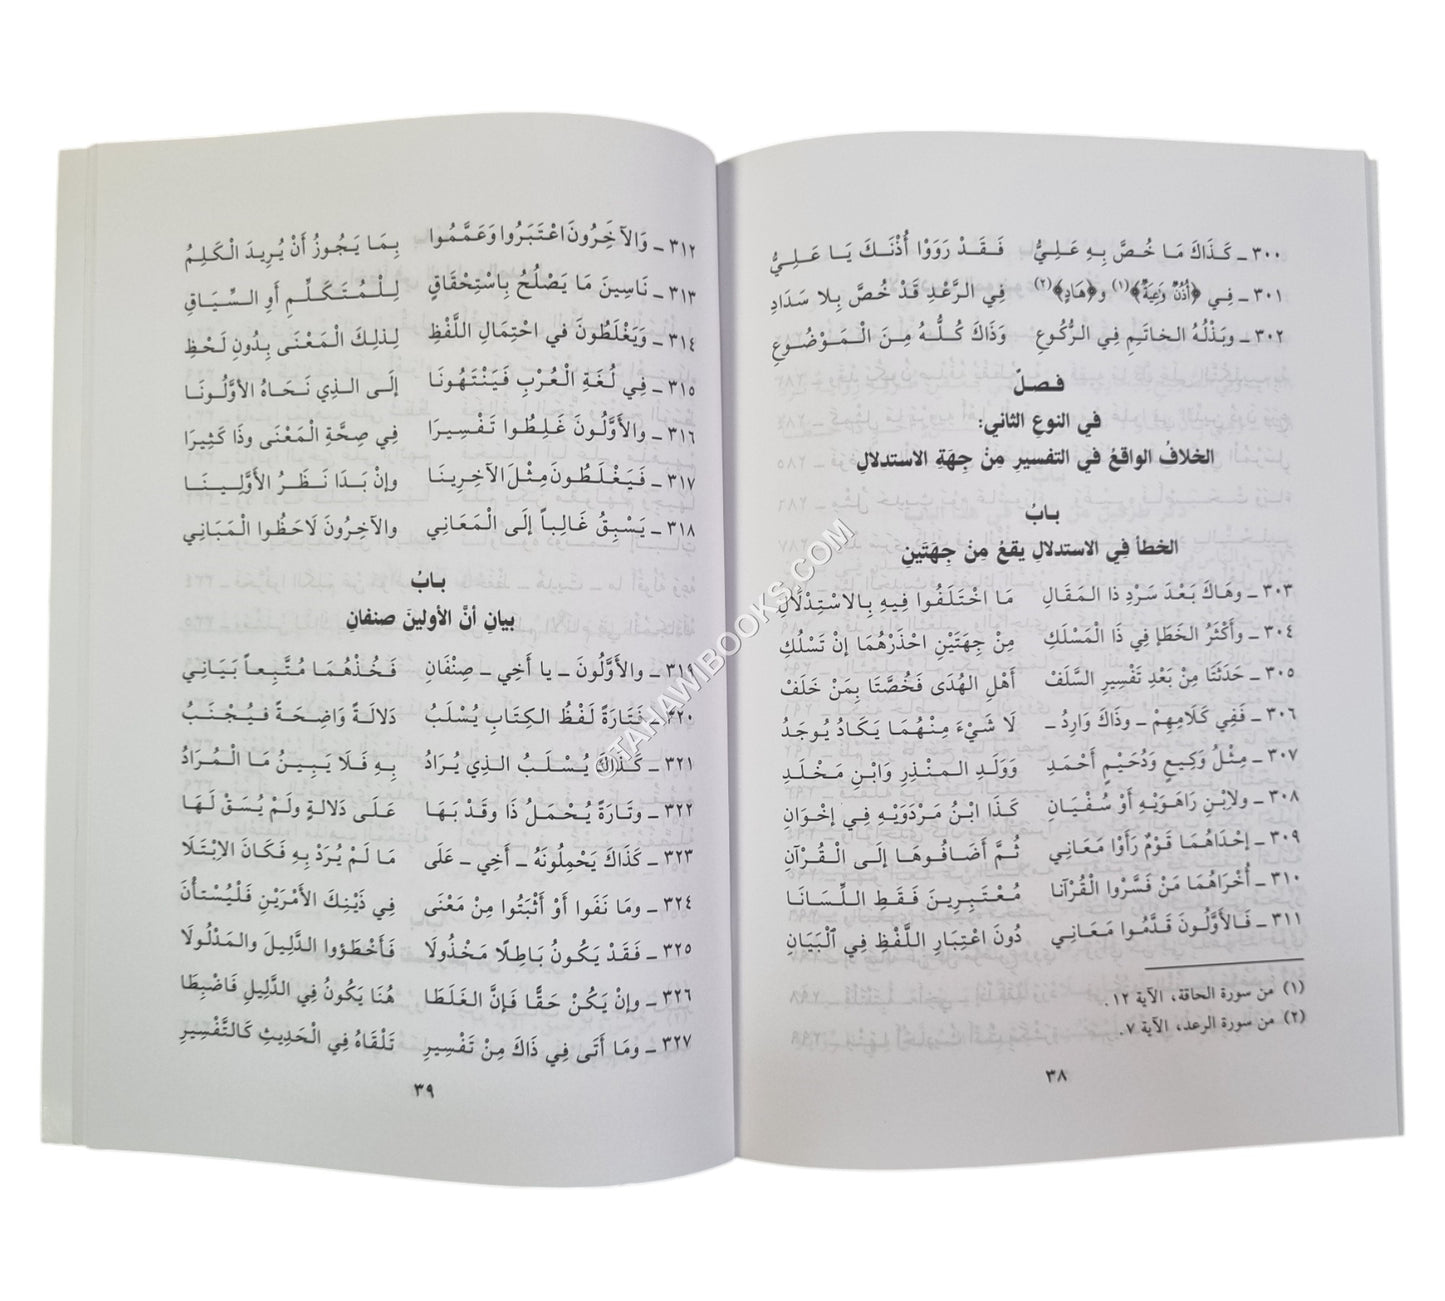 ٣٠٠ ـ كَذَاكَ مَا خُصَّ بِهِ عَلِيُّ فَقَدْ رَوَوْا أُذْنَكَ يَا عَلِيُّ
٣٠١ ـ فِي ﴿أُذُنٌ وَعِيَةٌ﴾(١) و﴿هَادٍ﴾(٢) فِي الرَّعْدِ قَدْ خُصَّ بِلا سَدَادِ
٣٠٢ ـ وبَذْلُهُ الخاتَمِ فِي الرُّكُوعِ وَذَاكَ كُلُّهُ مِنَ الْمَوْضُوعِ
فصلٌ
في النوعِ الثاني:
الخلافُ الواقعُ في التفسيرِ مِنْ جِهَةِ الاستدلالِ
بابُ
الخطأ فِي الاستدلالِ يقعُ مِنْ جِهَتَينِ
٣٠٣ ـ وهَاكَ بَعْدَ سَرْدِ ذا المَقَالِ مَا اخْتَلَفُوا فِيهِ بِالاسْتِدْلَالِ
٣٠٤ ـ وأَكْثَرُ الخَطَإِ فِي ذَا الْمَسْلَكِ مِنْ جِهَتَيْنِ احْذَرْهُمَا إنْ تَسْلُكِ
٣٠٥ ـ حَدَثَتَا مِنْ بَعْدِ تَفْسِيرِ السَّلَفْ أَهْلِ الهُدَى فَخُصَّتَا بِمَنْ خَلَفْ
٣٠٦ ـ فَفِي كَلَامِهِمْ ـ وذَاكَ وَارِدُ ـ لَا شَيْءَ مِنْهُمَا يَكَادُ يُوجَدُ
٣٠٧ ـ مِثْلُ وَكِيعٍ وَدُحَيْمٍ أَحْمَدِ وَوَلَدِ المنْذِرِ وَابْنِ مَخْلَدِ
٣٠٨ ـ ولابْنِ رَاهَوَيْهِ أَوْ سُفْيَانِ كَذَا ابْنُ مَرْدَوَيْهِ فِي إخْوَانِ
٣٠٩ ـ إحْدَاهُمَا قَوْمٌ رَأَوْا مَعَانِي ثُمَّ أَضَافُوهَا إلَى الْقُرْآنِ
٣١٠ ـ أُخْرَاهُمَا مَنْ فَسَّرُوا الْقُرْآنا مُعْتَبِرِينَ فَقَطِ اللِّسَانَا
٣١١ ـ فَالأَوَّلُونَ قَدَّمُوا مَعَانِي دُونَ اعْتِبَارِ اللَّفْظِ فِي الْبَيَانِ
(١) من سورة الحاقة، الآية ١٢.
(٢) من سورة الرعد، الآية ٧.
٣٨
٣١٢ ـ وَالآخِرُونَ اعْتَبَرُوا وَعَمَّمُوا بِمَا يَجُوزُ أَنْ يُرِيدَ الْكَلِمُ
٣١٣ ـ نَاسِينَ مَا يَصْلُحُ بِاسْتِحْقَاقِ لِلْمُتَكَلِّمِ أَوِ السِّيَاقِ
٣١٤ ـ وَيَغْلَطُونَ في احْتِمَالِ اللَّفْظِ لِذلِكَ الْمَعْنَى بِدُونِ لَحْظِ
٣١٥ ـ فِي لُغَةِ الْعُرْبِ فَيَنْتَهُونَا إلَى الذِي نَحَاهُ الأوَّلُونَا
٣١٦ ـ والأَوَّلُونَ غَلِطُوا تَفْسِيرَا فِي صِحَّةِ الْمَعْنَى وذَا كَثِيرَا
٣١٧ ـ فَيَغْلَطُونَ مِثْلَ الآخِرِينَا وإنْ بَدَا نَظَرُ الأَوَّلِينَا
٣١٨ ـ يَسْبِقُ غَالِباً إلَى الْمَعَانِي والآخِرُونَ لَاحَظُوا الْمَبَانِي
بابُ
بيانِ أنَّ الأولينَ صنفانِ
٣١٩ ـ والأَوَّلُونَ ـ يا أَخِي ـ صِنْفَانِ فَخُذْهُمَا مُتَّبِعاً بَيَانِي
٣٢٠ ـ فَتَارَةً لَفْظُ الكِتَابِ يُسْلَبُ دَلالَةً وَاضِحَةً فيُجْنَبُ
٣٢١ ـ كَذَاكَ يُسْلَبُ الذِي يُرَادُ بِهِ فَلَا يَبِينُ مَا الْمُرَادُ
٣٢٢ ـ وتَارَةً يُحْمَلُ ذَا وقَدْ بَهَا عَلَى دَلالةٍ ولَمْ يُسَقْ لَهَا
٣٢٣ ـ كَذَاكَ يَحْمِلُونَهُ ـ أَخِي ـ عَلَى مَا لَمْ يُرَدْ بِهِ فَكَانَ الابْتَلَا
٣٢٤ ـ ومَا نَفَوا أَوْ أَثْبَتُوا مِنْ مَعْنَى فِي ذَيْنِكَ الأَمْرَيْنِ فَلْيُسْتأْنَ
٣٢٥ ـ فَقَدْ يَكُونُ بَاطِلًا مَخْذُولَا فَأَخْطَؤوا الدَّلِيلَ والمَدْلُولَا
٣٢٦ ـ وإنْ يَكُنْ حَقًّا فَإنَّ الغَلَطَا هُنَا يَكُونُ فِي الدَّلِيلِ فَاضْبِطَا
٣٢٧ ـ ومَا أَتَى فِي ذَاكَ مِنْ تَفْسِيرِ تَلْقَاهُ فِي الْحَدِيثِ كَالتَّفْسِيرِ
٣٩
©TAHAWIBOOKS.COM